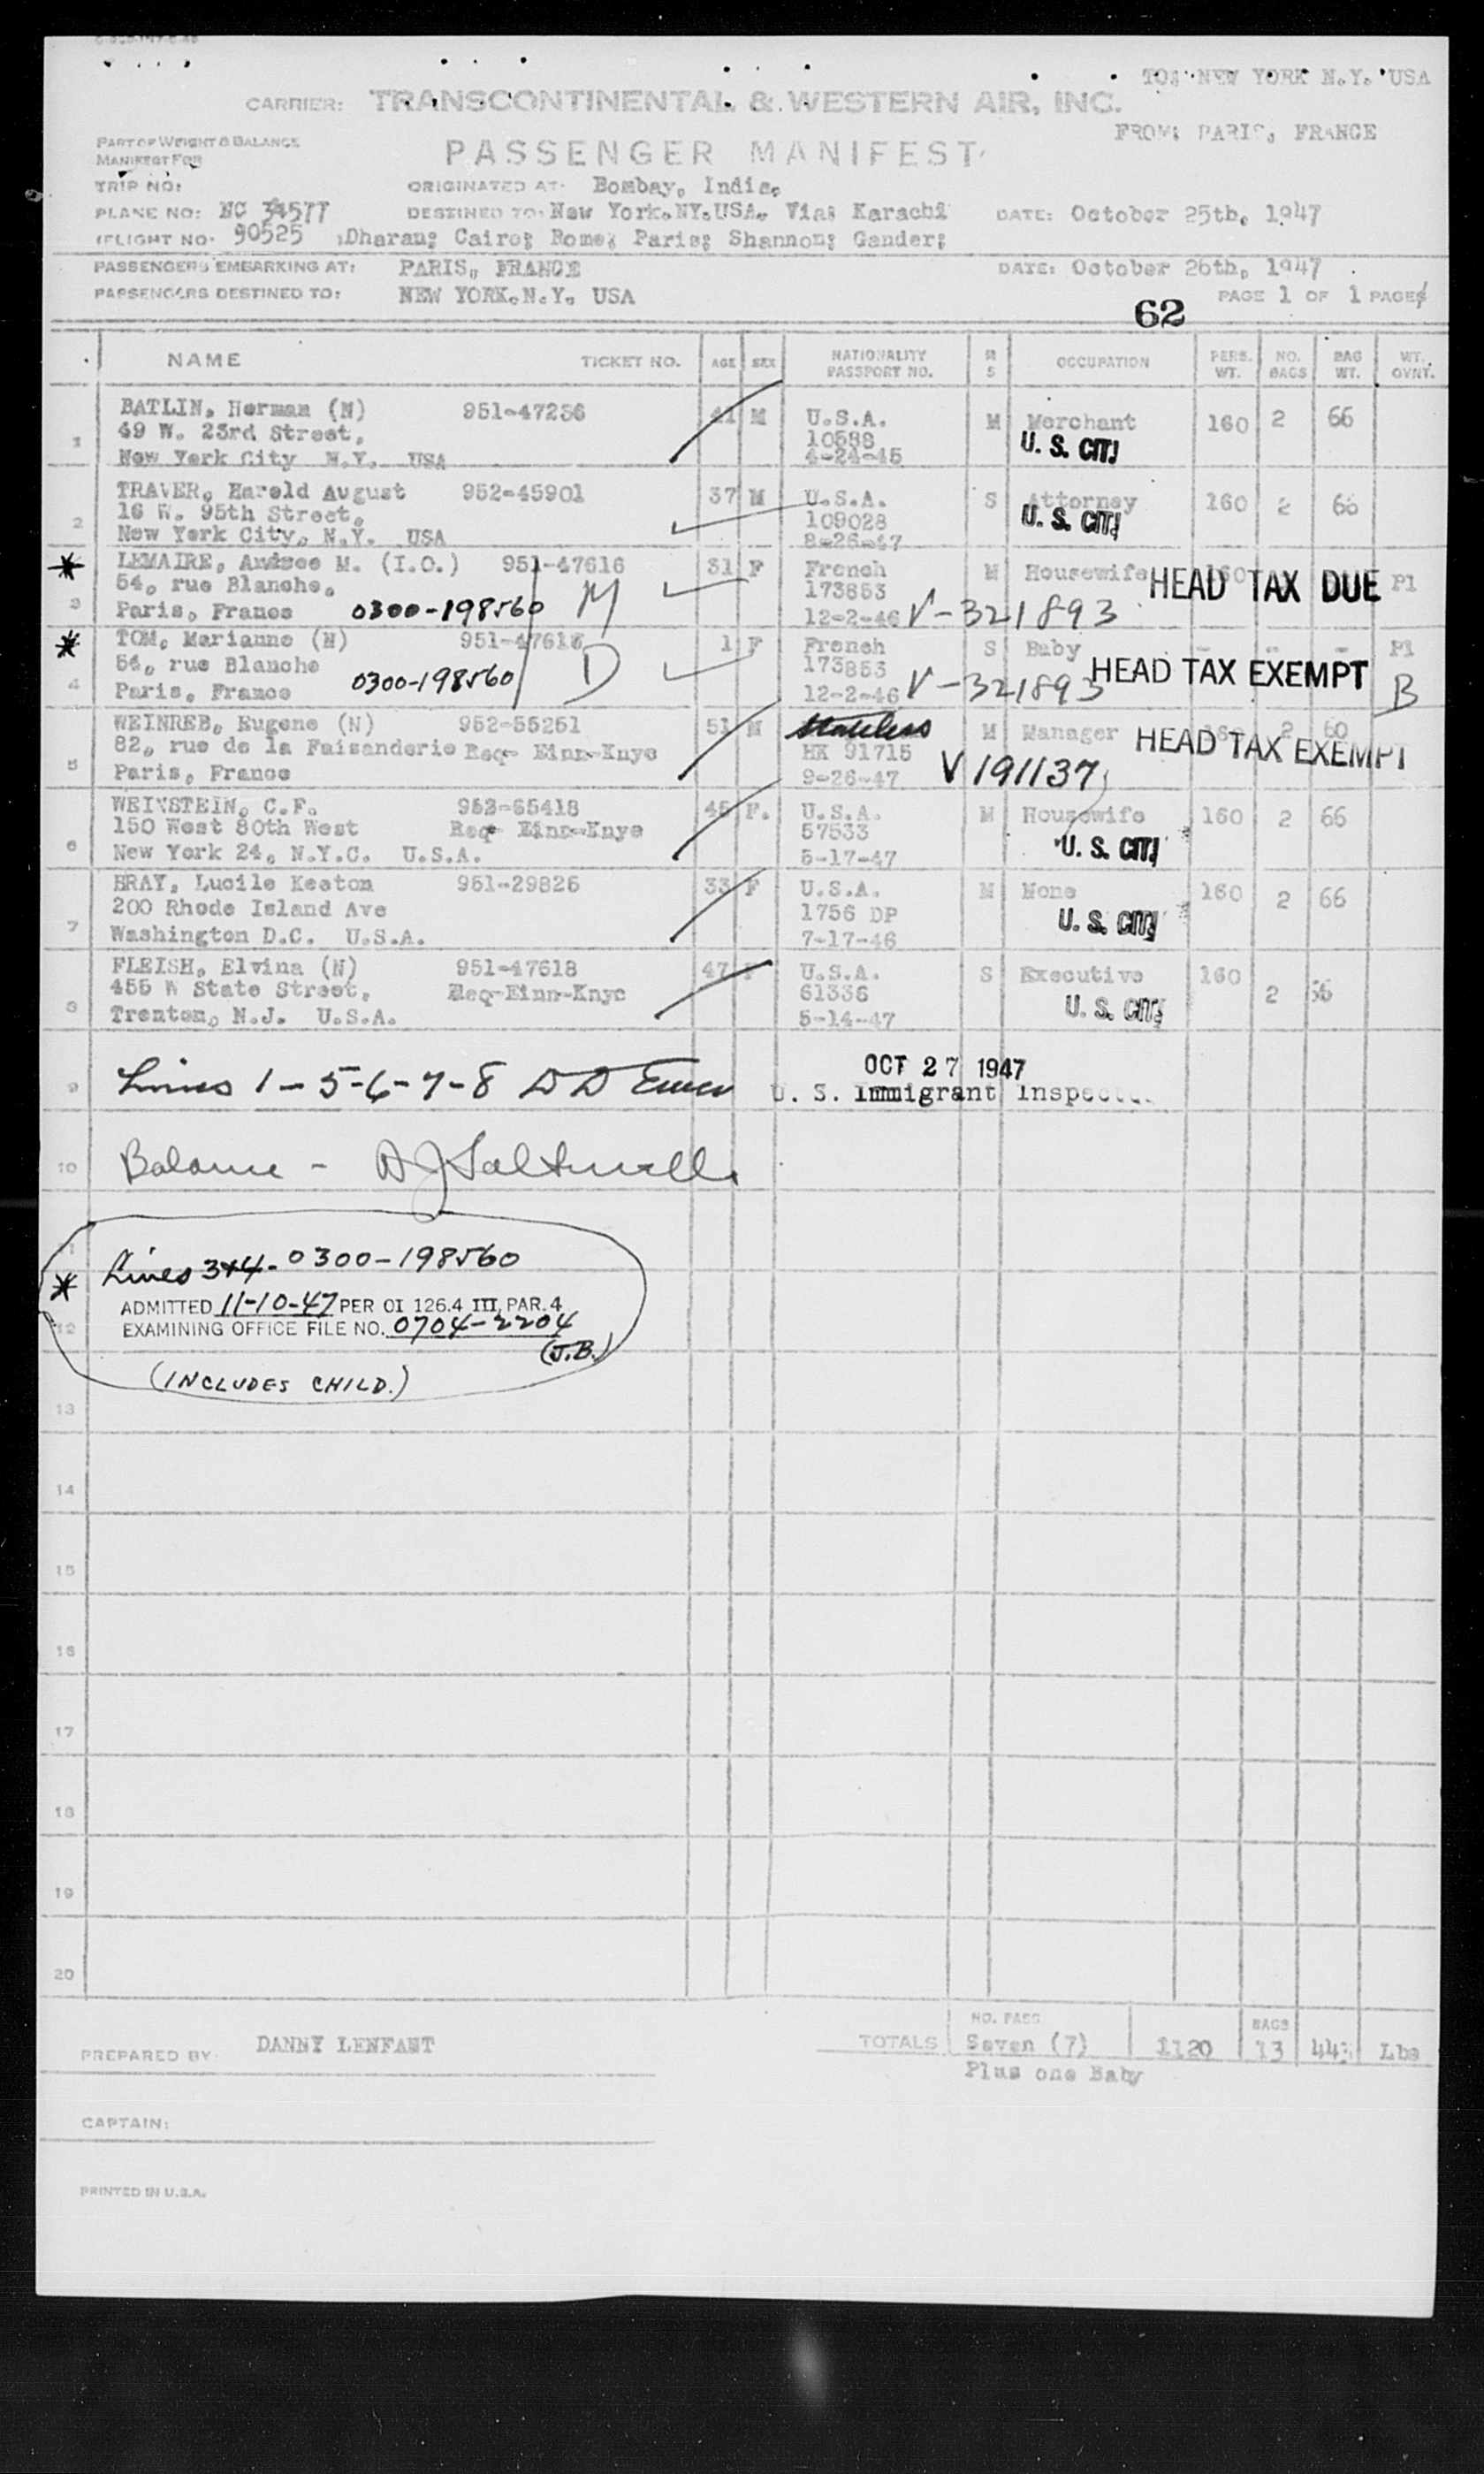 TO: NEW YORK N.Y. USA
CARRIER: TRANSCONTINENTAL & WESTERN AIR, INC.
FROM: PARIS, FRANCE
PART OF WEIGHT & BALANCE
MANIFEST FOR
PASSENGER MANIFEST
TRIP NO:
ORIGINATED AT: Bombay, India,
PLANE NO: NC 34577
DESTINED TO: New York.NY.USA. Via: Karachi
DATE: October 25th, 1947
FLIGHT NO. 90525
Dharan; Cairo; Rome; Paris; Shannon; Gander;
PASSENGERS EMBARKING AT: PARIS, FRANCE
DATE: October 26th, 1947
PASSENGERS DESTINED TO: NEW YORK.N.Y. USA
PAGE 1 OF 1 PAGES
62
NAME TICKET NO. AGE SEX NATIONALITY PASSPORT NO. M S OCCUPATION PERS. WT. NO. BAGS BAG WT. WT. OVNT.
BATLIN, Herman (N) 951-47236 41 M U.S.A. M Merchant 160 2 66
1 49 W. 23rd Street, 10688 U. S. CIT
New York City N.Y. USA 4-24-45
TRAVER, Harold August 952-45901 37 M U.S.A. S Attorney 160 2 66
2 16 W. 95th Street, 109028 U. S. CIT
New York City, N.Y. USA 8-26-47
* LEMAIRE, Andree M. (I.O.) 951-47616 31 F French M Housewife 160 HEAD TAX DUE P1
54, rue Blanche, M 173853
3 Paris, France 0300-198560 12-2-46 V-321893
* TOM, Marianne (N) 951-47616 1 F French S Baby - - - P1
54, rue Blanche D 173853 HEAD TAX EXEMPT
4 Paris, France 0300-198560 12-2-46 V-321893 B
WEINREB, Eugene (N) 952-55251 51 M Stateless M Manager 2 60
5 82, rue de la Faisanderie Req- Einn-Knyc HK 91715 HEAD TAX EXEMPT
Paris, France 9-26-47 V 191137
WEINSTEIN, C.F. 952-65418 45 F. U.S.A. M Housewife 160 2 66
6 150 West 80th West Req- Einn-Knyc 57533
New York 24, N.Y.C. U.S.A. 5-17-47 U. S. CIT
BRAY, Lucile Keaton 951-29826 33 F U.S.A. M None 160 2 66
7 200 Rhode Island Ave 1756 DP U. S. CIT
Washington D.C. U.S.A. 7-17-46
FLEISH, Elvina (N) 951-47618 47 F U.S.A. S Executive 160 2 66
8 455 W State Street, Req-Einn-Knyc 61336 U. S. CIT
Trenton, N.J. U.S.A. 5-14-47
OCT 27 1947
9 Lines 1-5-6-7-8 U. S. Immigrant Inspector
10 Balance -
11 Lines 3+4 - 0300-198560
* ADMITTED 11-10-47 PER OI 126.4 III, PAR. 4
12 EXAMINING OFFICE FILE NO. 0704-2204
(J.B.)
(INCLUDES CHILD.)
13
14
15
16
17
18
19
20
NO. PASS. BAGS
PREPARED BY: DANNY LENFANT TOTALS Seven (7) 1120 13 Lbs
Plus one Baby
CAPTAIN:
PRINTED IN U.S.A.